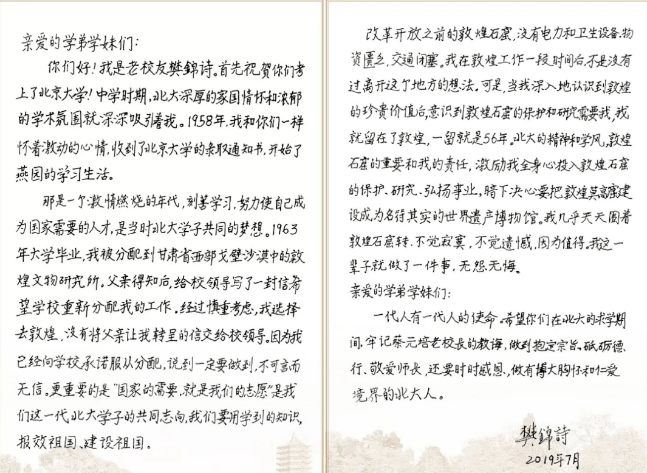 亲爱的学弟学妹们：
你们好！我是老校友樊錦詩。首先祝贺你们考
上了北京大学！中学时期，北大深厚的家国情怀和浓郁
的学术氛围就深深吸引着我。1958年，我和你们一样
怀着激动的心情，收到了北京大学的录取通知书，开始了
燕园的学习生活。
那是一个激情燃烧的年代，刻苦学习，努力使自己成
为国家需要的人才，是当时北大学子共同的梦想。1963
年大学毕业，我被分配到甘肃省西部戈壁沙漠中的敦
煌文物研究所。父亲得知后，给校领导写了一封信希
望学校重新分配我的工作。经过慎重考虑，我选择
去敦煌，没有将父亲让我转呈的信交给校领导。因为我
已经向学校承诺服从分配，说到一定要做到，不可言而
无信。更重要的是"国家的需要，就是我们的志愿"是我
们这一代北大学子的共同志向，我们要用学到的知识，
报效祖国、建设祖国。
改革开放之前的敦煌石窟，没有电力和卫生设备，物
资匮乏，交通闭塞。我在敦煌工作一段时间后，不是没有
过离开这个地方的想法。可是，当我深入地认识到敦煌
的珍贵价值后，意识到敦煌石窟的保护和研究需要我，我
就留在了敦煌，一留就是56年。北大的精神和学风，敦煌
石窟的重要和我的责任，激励我全身心投入敦煌石窟
的保护、研究、弘扬事业，暗下决心要把敦煌莫高窟建
设成为名符其实的世界遗产博物馆。我几乎天天围着
敦煌石窟转，不觉寂寞，不觉遗憾，因为值得。我这一
辈子就做了一件事，无怨无悔。
亲爱的学弟学妹们：
一代人有一代人的使命。希望你们在北大的求学期
间，牢记蔡元培老校长的教诲，做到抱定宗旨、砥砺德
行、敬爱师长，还要时时感恩，做有博大胸怀和仁爱
境界的北大人。
樊錦詩
2019年7月